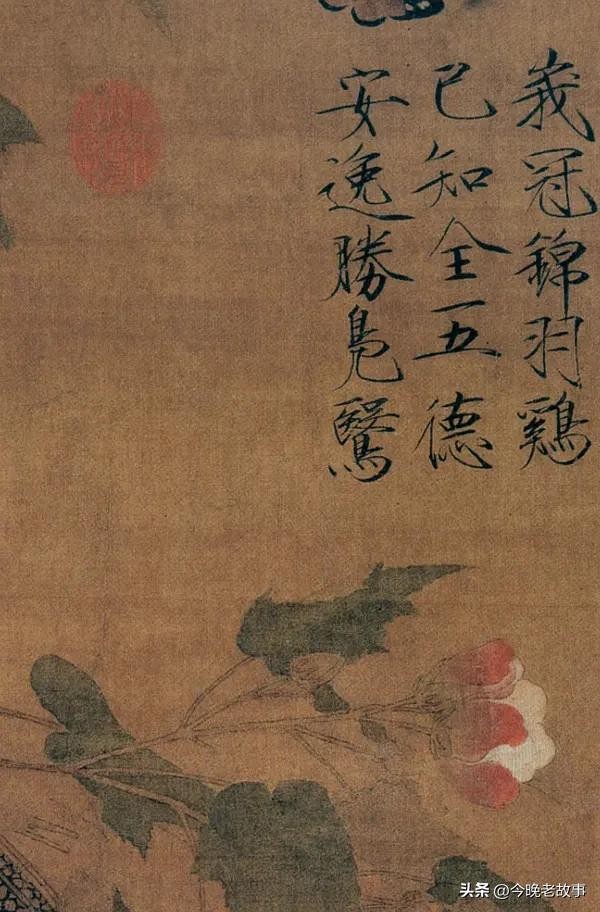 峩冠錦羽鷄
已知全五德
安逸勝鳧鷖
头条 @今晚老故事